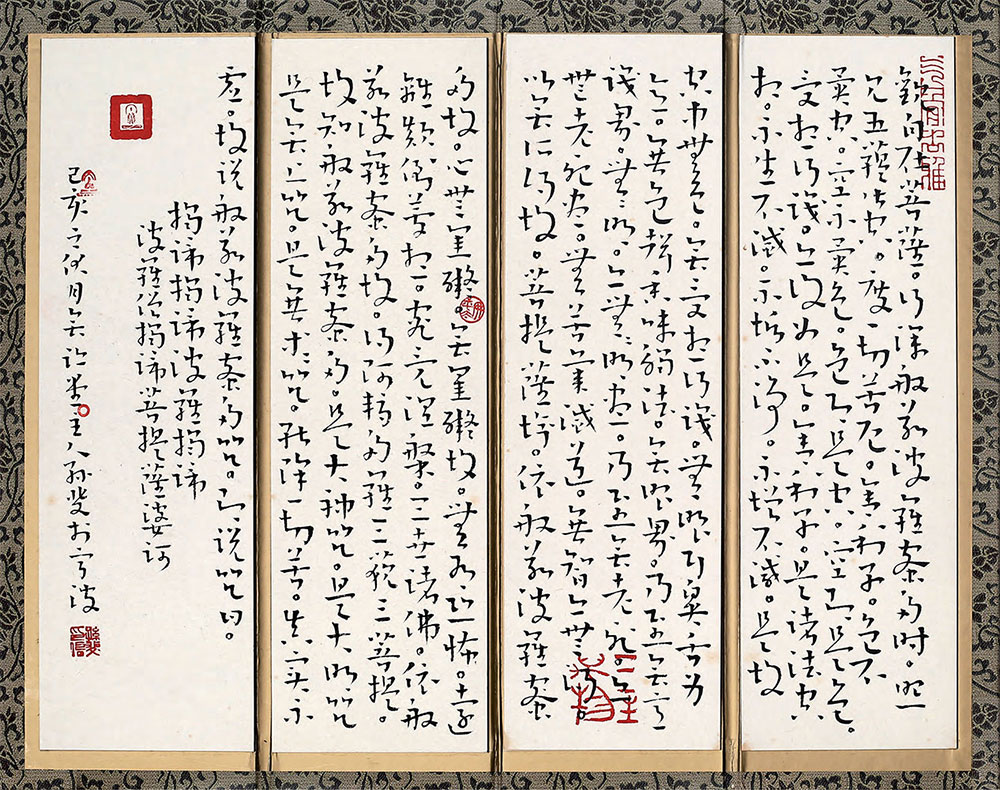 觀自在菩薩。行深般若波羅蜜多時。照
見五蘊皆空。度一切苦厄。舍利子。色不
異空。空不異色。色即是空。空即是色。
受想行識。亦復如是。舍利子。是諸法空
相。不生不滅。不垢不淨。不增不減。是故
空中無色。無受想行識。無眼耳鼻舌身
意。無色聲香味觸法。無眼界。乃至無意
識界。無無明。亦無無明盡。乃至無老死。亦
無老死盡。無苦集滅道。無智亦無得。
以無所得故。菩提薩埵。依般若波羅蜜
多故。心無罣礙。無罣礙故。無有恐怖。遠
離顛倒夢想。究竟涅槃。三世諸佛。依般
若波羅蜜多故。得阿耨多羅三藐三菩提。
故知般若波羅蜜多。是大神咒。是大明咒
是無上咒。是無等等咒。能除一切苦。真實不
虛。故說般若波羅蜜多咒。即說咒曰。
揭諦揭諦波羅揭諦
波羅僧揭諦菩提薩婆訶
己亥伏月主人孫斐於寧波